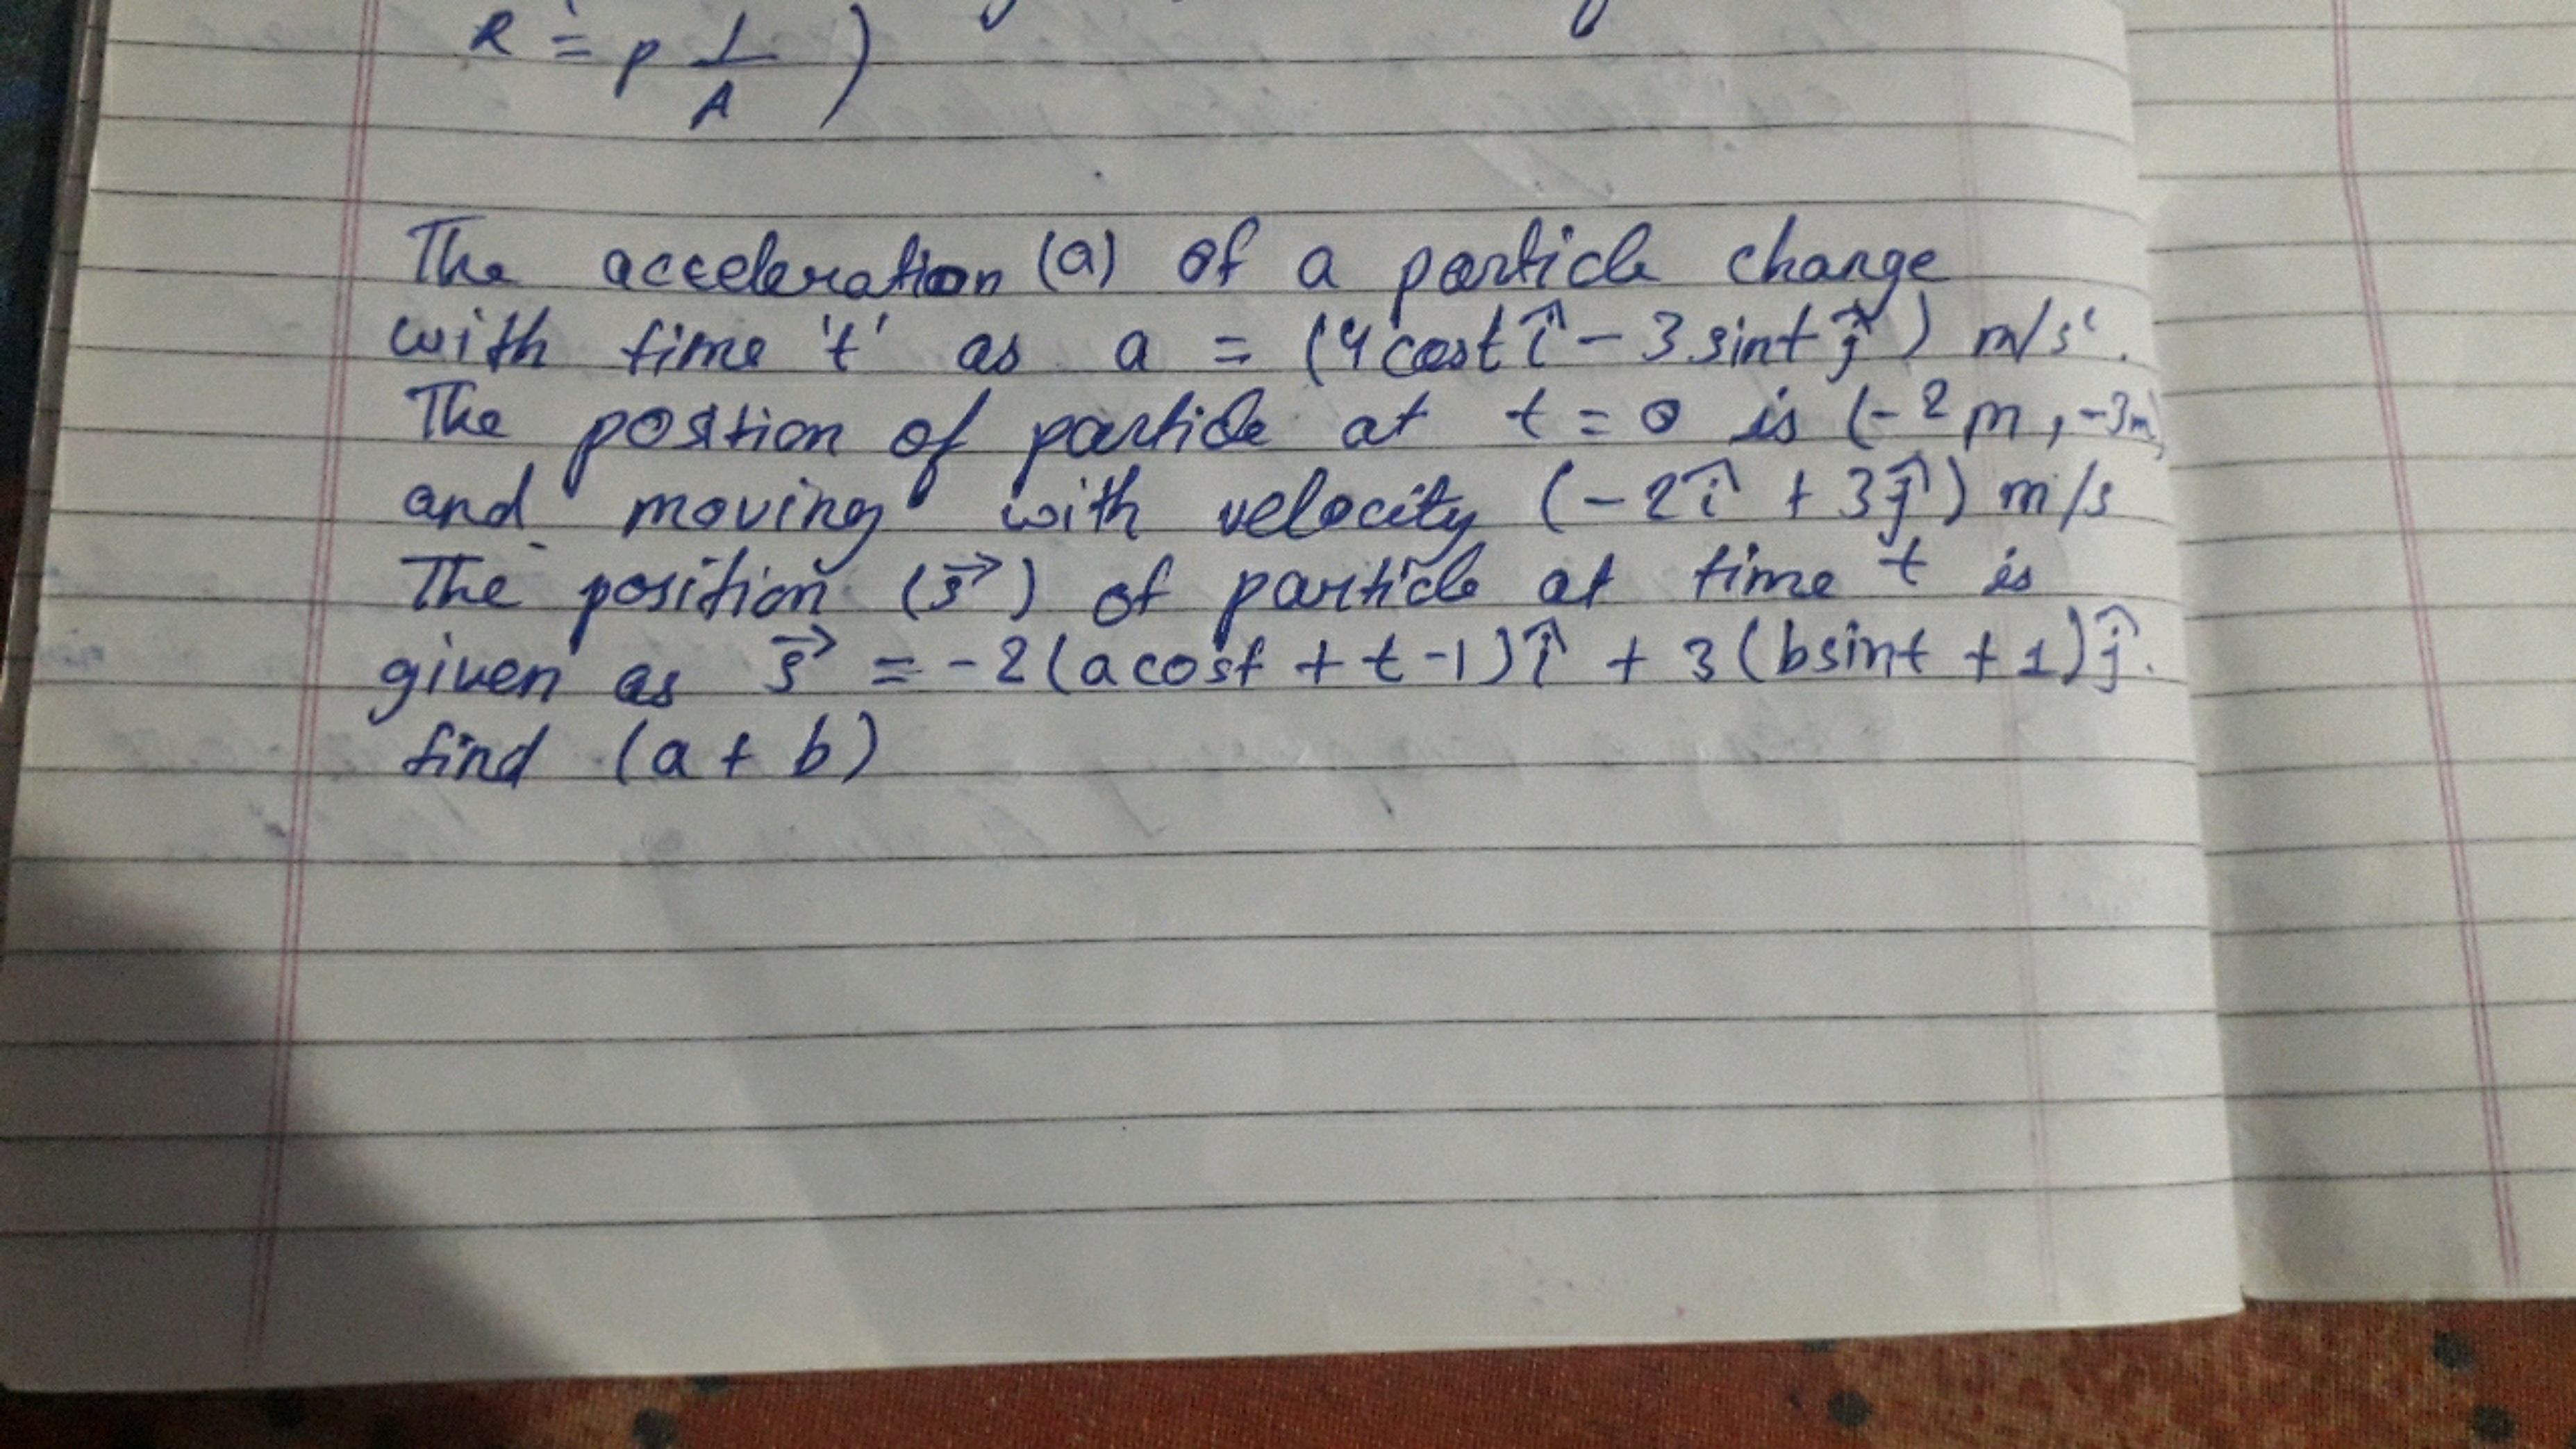 R = ρ l/A )
The acceleration (a) of a particle change
with time 't' as a = (4 cost î - 3 sint ĵ) m/s².
The position of particle at t = 0 is (-2m, -3m)
and moving with velocity (-2î + 3ĵ) m/s
The position (s→) of particle at time t is
given as s→ = -2(a cost + t - 1)î + 3(b sint + 1)ĵ.
find (a + b)